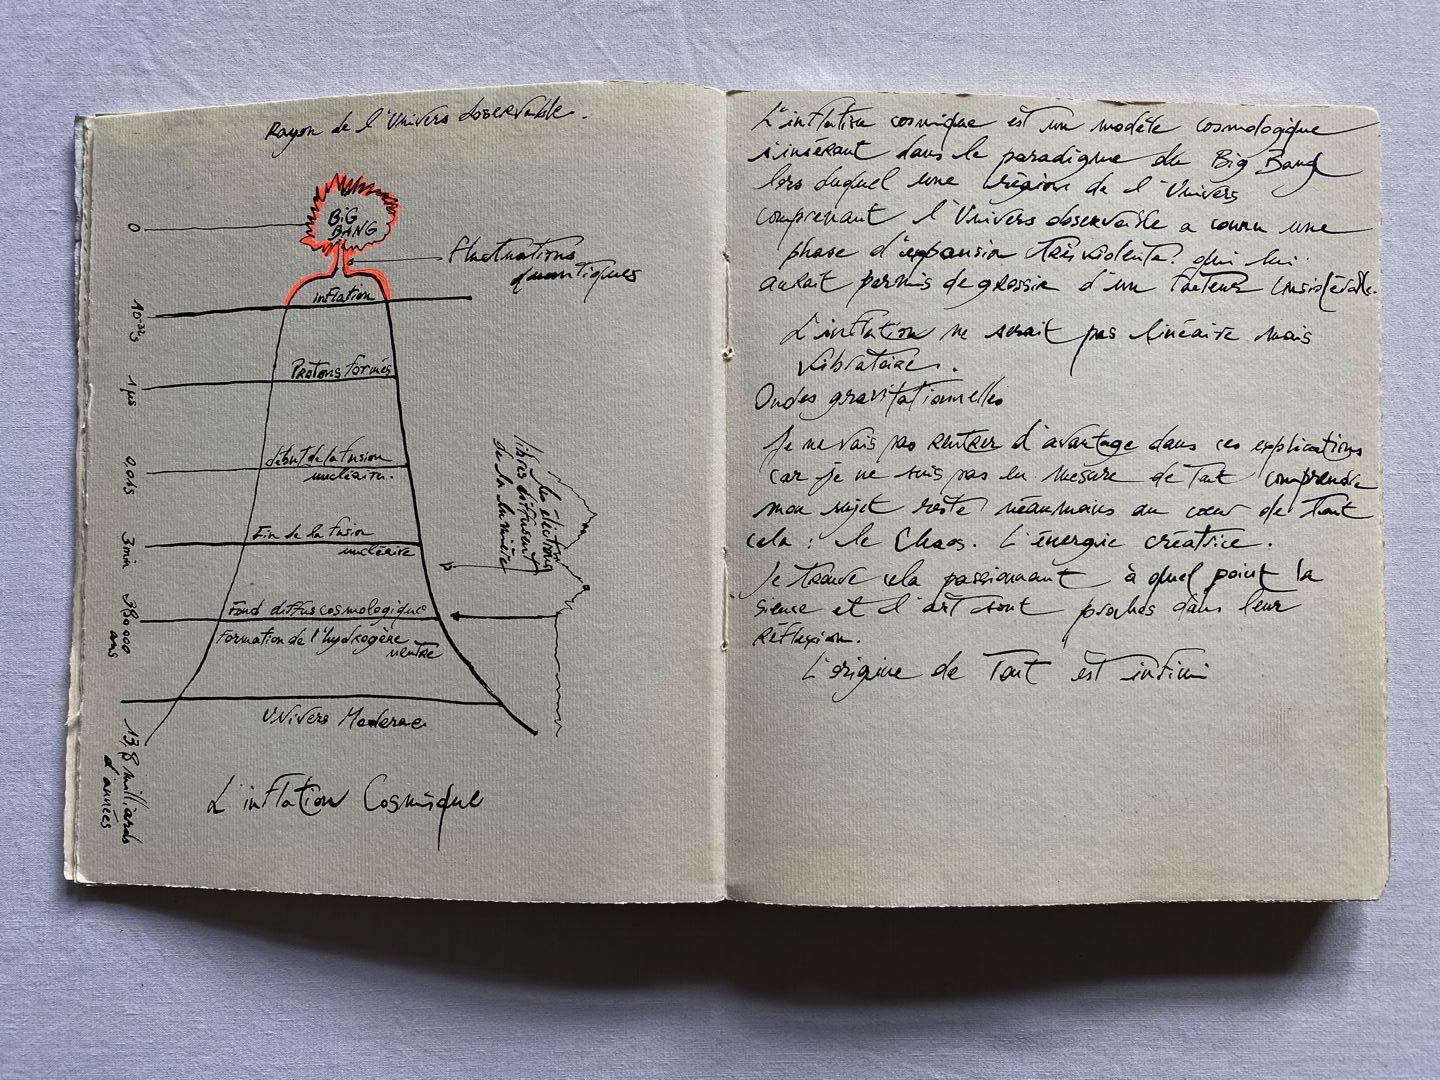 Rayon de l'Univers observable.
0
BiG
BANG
fluctuations
quantiques
inflation
10⁻³²s
Protons formés
1 µs
début de la fusion
nucléaire.
0,01s
Fin de la fusion
nucléaire
3 min
les électrons
libres diffusent
de la lumière
Fond diffus cosmologique
380 000
ans
Formation de l'hydrogène
neutre
Univers Moderne
13,8 milliards
d'années
L'inflation Cosmique
L'inflation cosmique est un modèle cosmologique
s'insérant dans le paradigme du Big Bang
lors duquel une région de l'Univers
comprenant l'Univers observable a connu une
phase d'expansion très violente? qui lui
aurait permis de grossir d'un facteur considérable.
L'inflation ne serait pas linéaire mais
vibratoire.
Ondes gravitationnelles
Je ne vais pas rentrer d'avantage dans ces explications
car je ne suis pas en mesure de tout comprendre
mon sujet reste néanmoins au cœur de tout
cela : le Chaos. L'énergie créatrice.
Je trouve cela passionnant à quel point la
sience et l'art sont proches dans leur
réflexion.
L'origine de Tout est infini